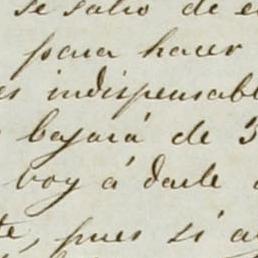 se salió de
para hacer
indispensabl
bajará de 3
voy á darle
te, pues si a